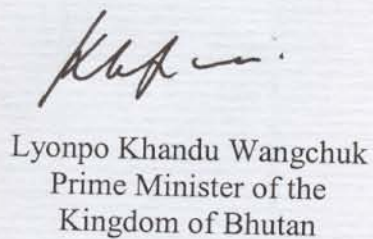 Lyonpo Khandu Wangchuk
Prime Minister of the
Kingdom of Bhutan